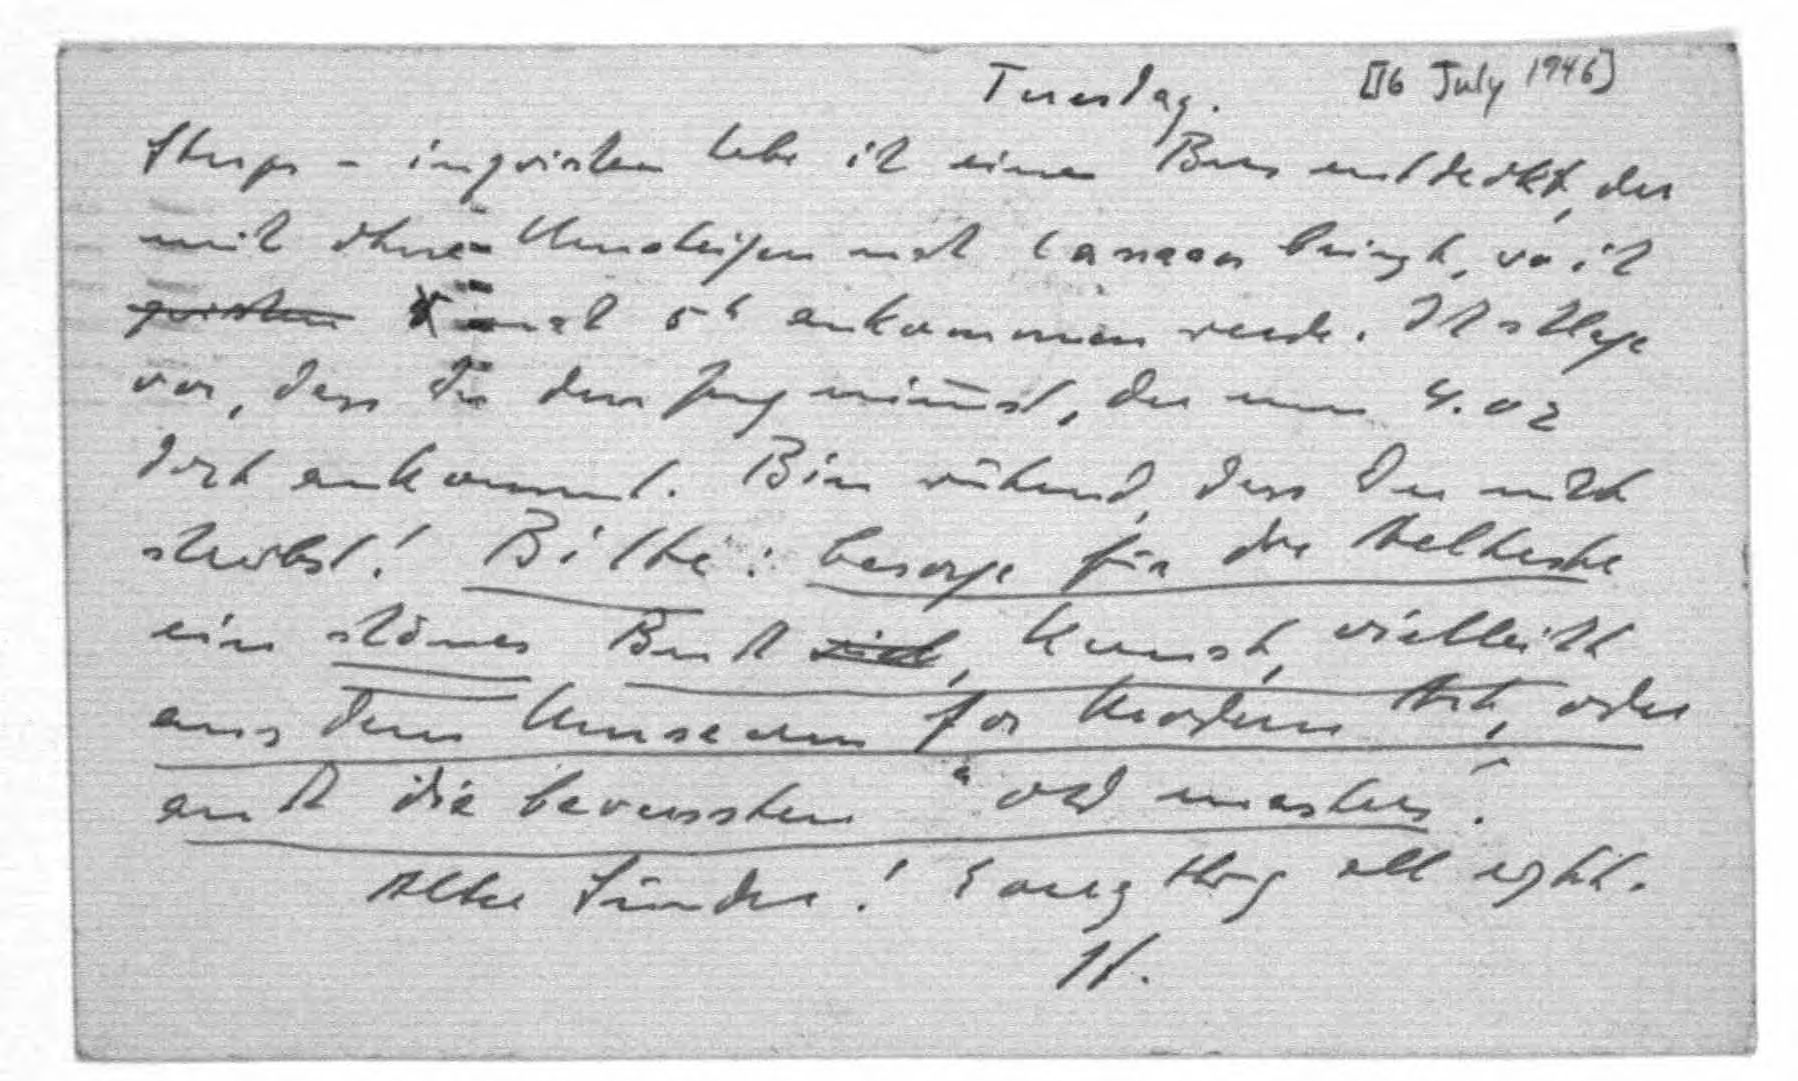 Tuesday. [16 July 1946]
- inzwischen habe ich einen Bus entdeckt, der
mich ohne Umsteigen nach bringt, wo ich
~~zwischen~~ nach 5h ankommen werde. Ich schlage
vor, dass Du den Zug nimmst, der um 4.02
dort ankommt. Bin wütend, dass Du nicht
schreibst! Bitte: besorge für die Aelteste
ein schönes Buch, Kunst, vielleicht
aus dem Museum for Modern Art, oder
auch die bewussten "old masters".
Alte Sünder! Everything all right.
H.